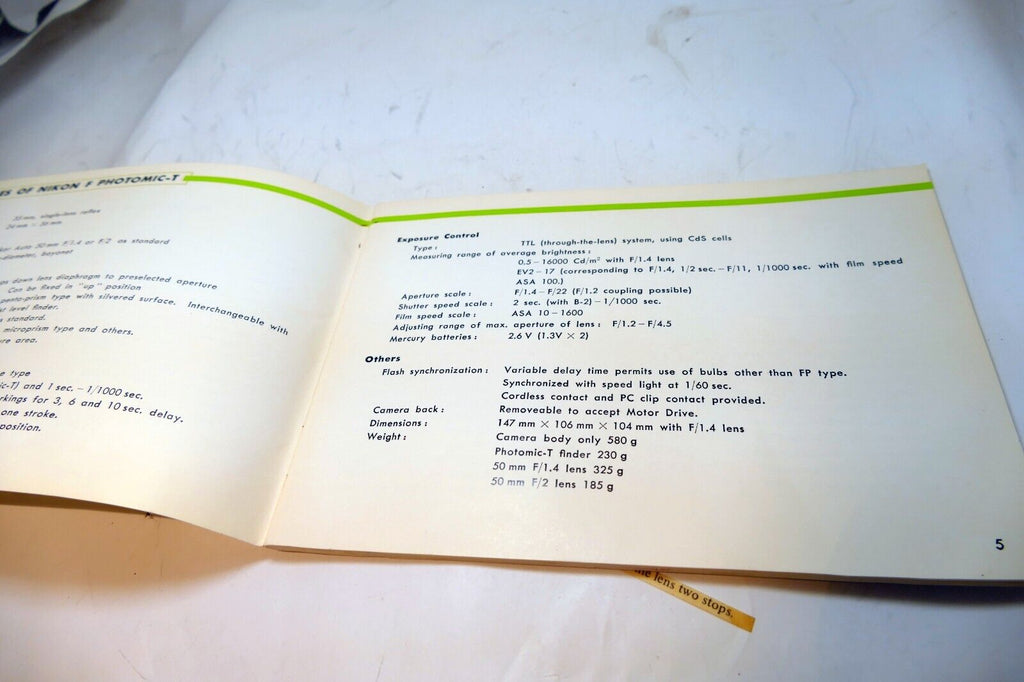 ES OF NIKON F PHOTOMIC-T
35 mm, single-lens reflex
24 mm × 36 mm
Auto 50 mm F/1.4 or F/2 as standard
diameter, bayonet
down lens diaphragm to preselected aperture
Can be fixed in "up" position
penta-prism type with silvered surface. Interchangeable with
level finder.
standard.
microprism type and others.
area.
type
ic-T) and 1 sec. – 1/1000 sec.
rkings for 3, 6 and 10 sec. delay.
one stroke.
position.
Exposure Control
Type: TTL (through-the-lens) system, using CdS cells
Measuring range of average brightness:
0.5 – 16000 Cd/m² with F/1.4 lens
EV2 – 17 (corresponding to F/1.4, 1/2 sec. – F/11, 1/1000 sec. with film speed
ASA 100.)
Aperture scale: F/1.4 – F/22 (F/1.2 coupling possible)
Shutter speed scale: 2 sec. (with B-2) – 1/1000 sec.
Film speed scale: ASA 10 – 1600
Adjusting range of max. aperture of lens: F/1.2 – F/4.5
Mercury batteries: 2.6 V (1.3V × 2)
Others
Flash synchronization: Variable delay time permits use of bulbs other than FP type.
Synchronized with speed light at 1/60 sec.
Cordless contact and PC clip contact provided.
Camera back: Removeable to accept Motor Drive.
Dimensions: 147 mm × 106 mm × 104 mm with F/1.4 lens
Weight: Camera body only 580 g
Photomic-T finder 230 g
50 mm F/1.4 lens 325 g
50 mm F/2 lens 185 g
5
lens two stops.